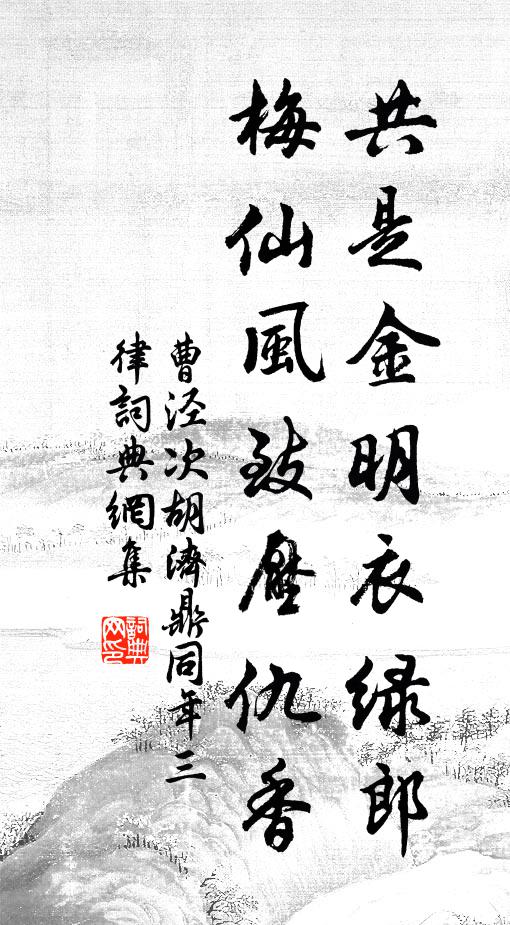 共是金明衣绿郎
梅仙風致壓仇香
曹涇次胡濟鼎同年三
律詞典網集
詞典
网印